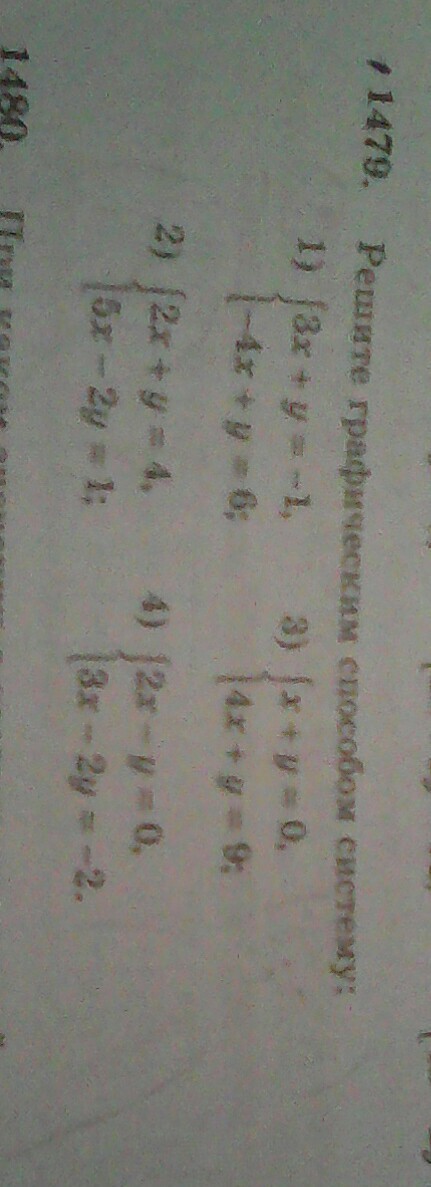 1479. Решите графическим способом систему:
1) { 3x + y = -1,
-4x + y = 6;
2) { 2x + y = 4,
5x - 2y = 1;
3) { x + y = 0,
4x + y = 9;
4) { 2x - y = 0,
3x - 2y = -2.
1480. При каком